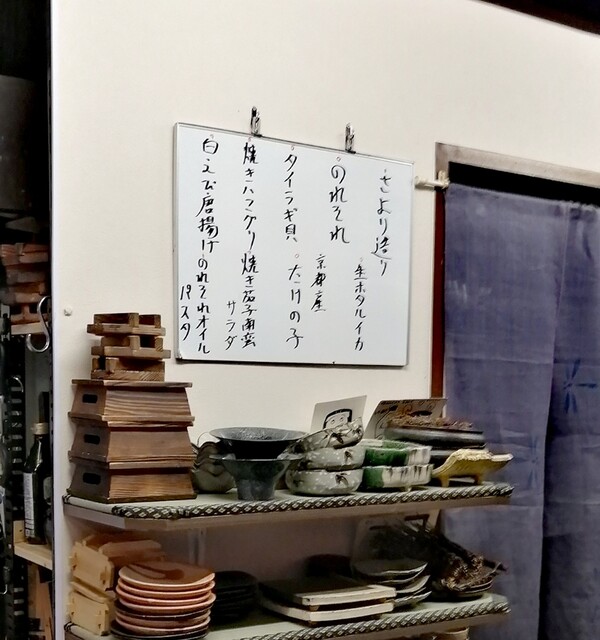 さより造り
生ホタルイカ
のれそれ
京都産
たけの子
タイラギ貝
焼きハマグリ
焼き茄子南蛮
サラダ
白えび唐揚げ
のれそれオイル
パスタ